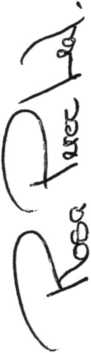 Rosa Perez Leal.